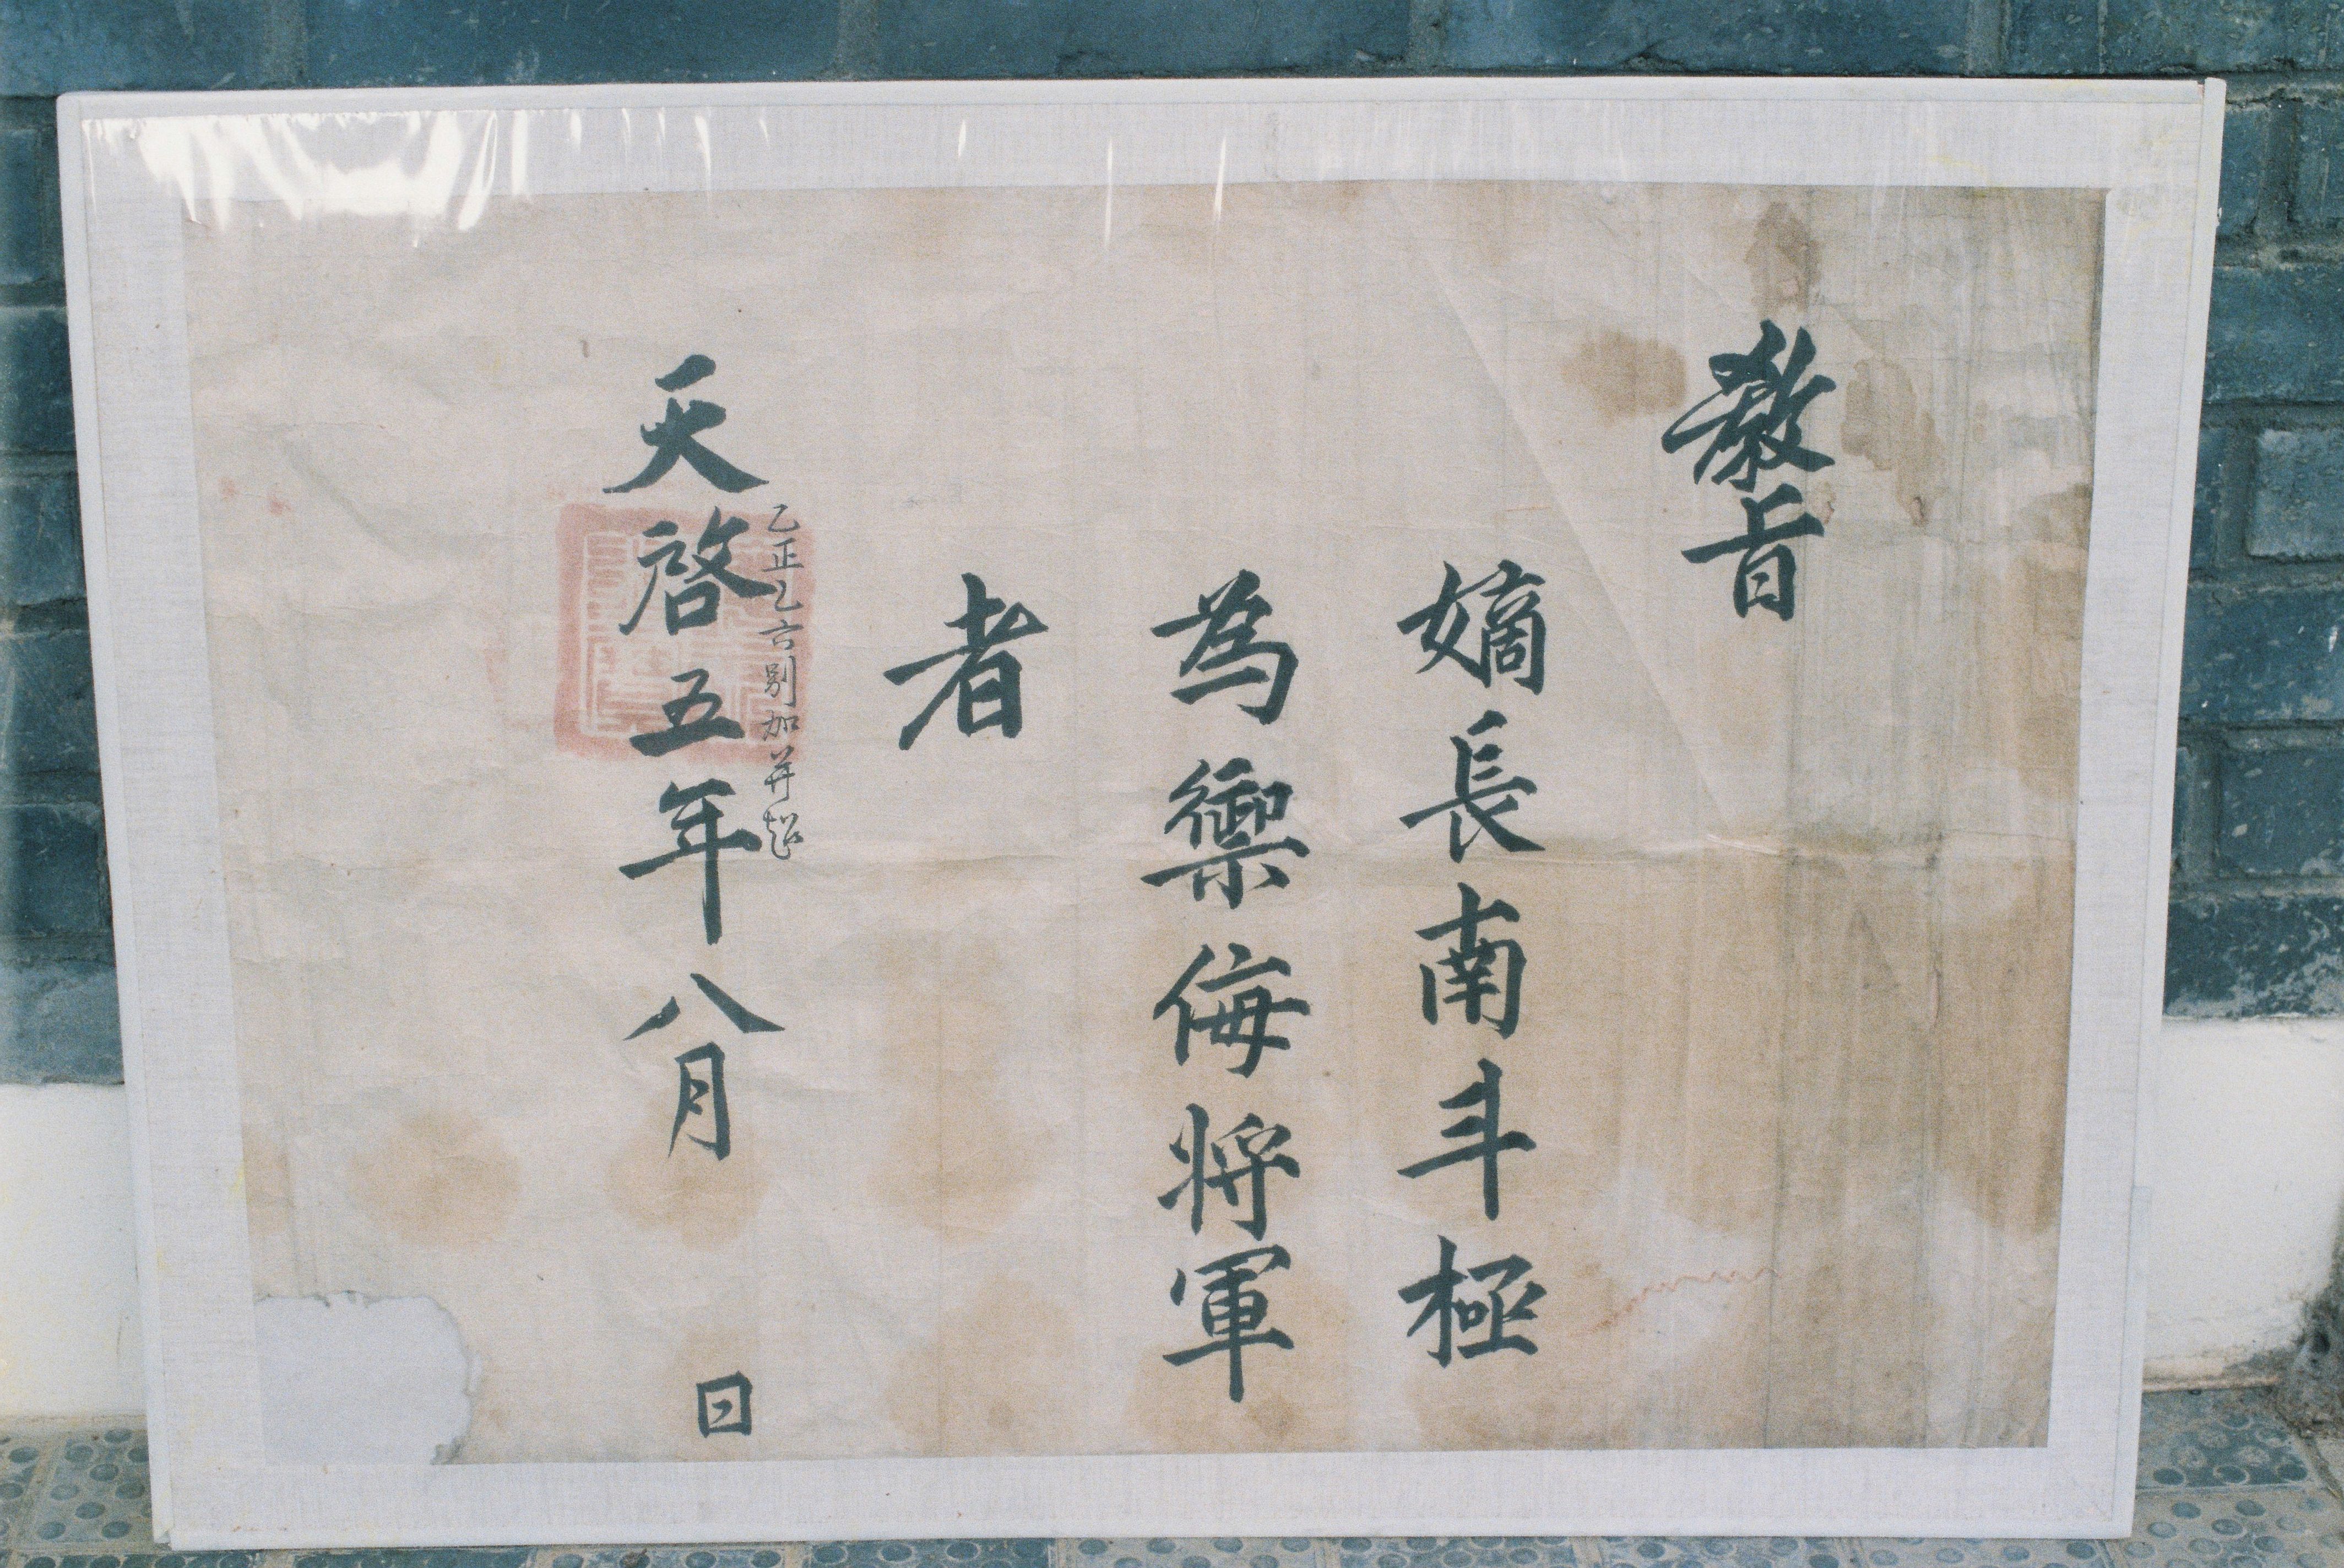 敎旨
嫡長南斗極
為禦侮將軍
者
天啓五年八月 日
乙正乙 別加